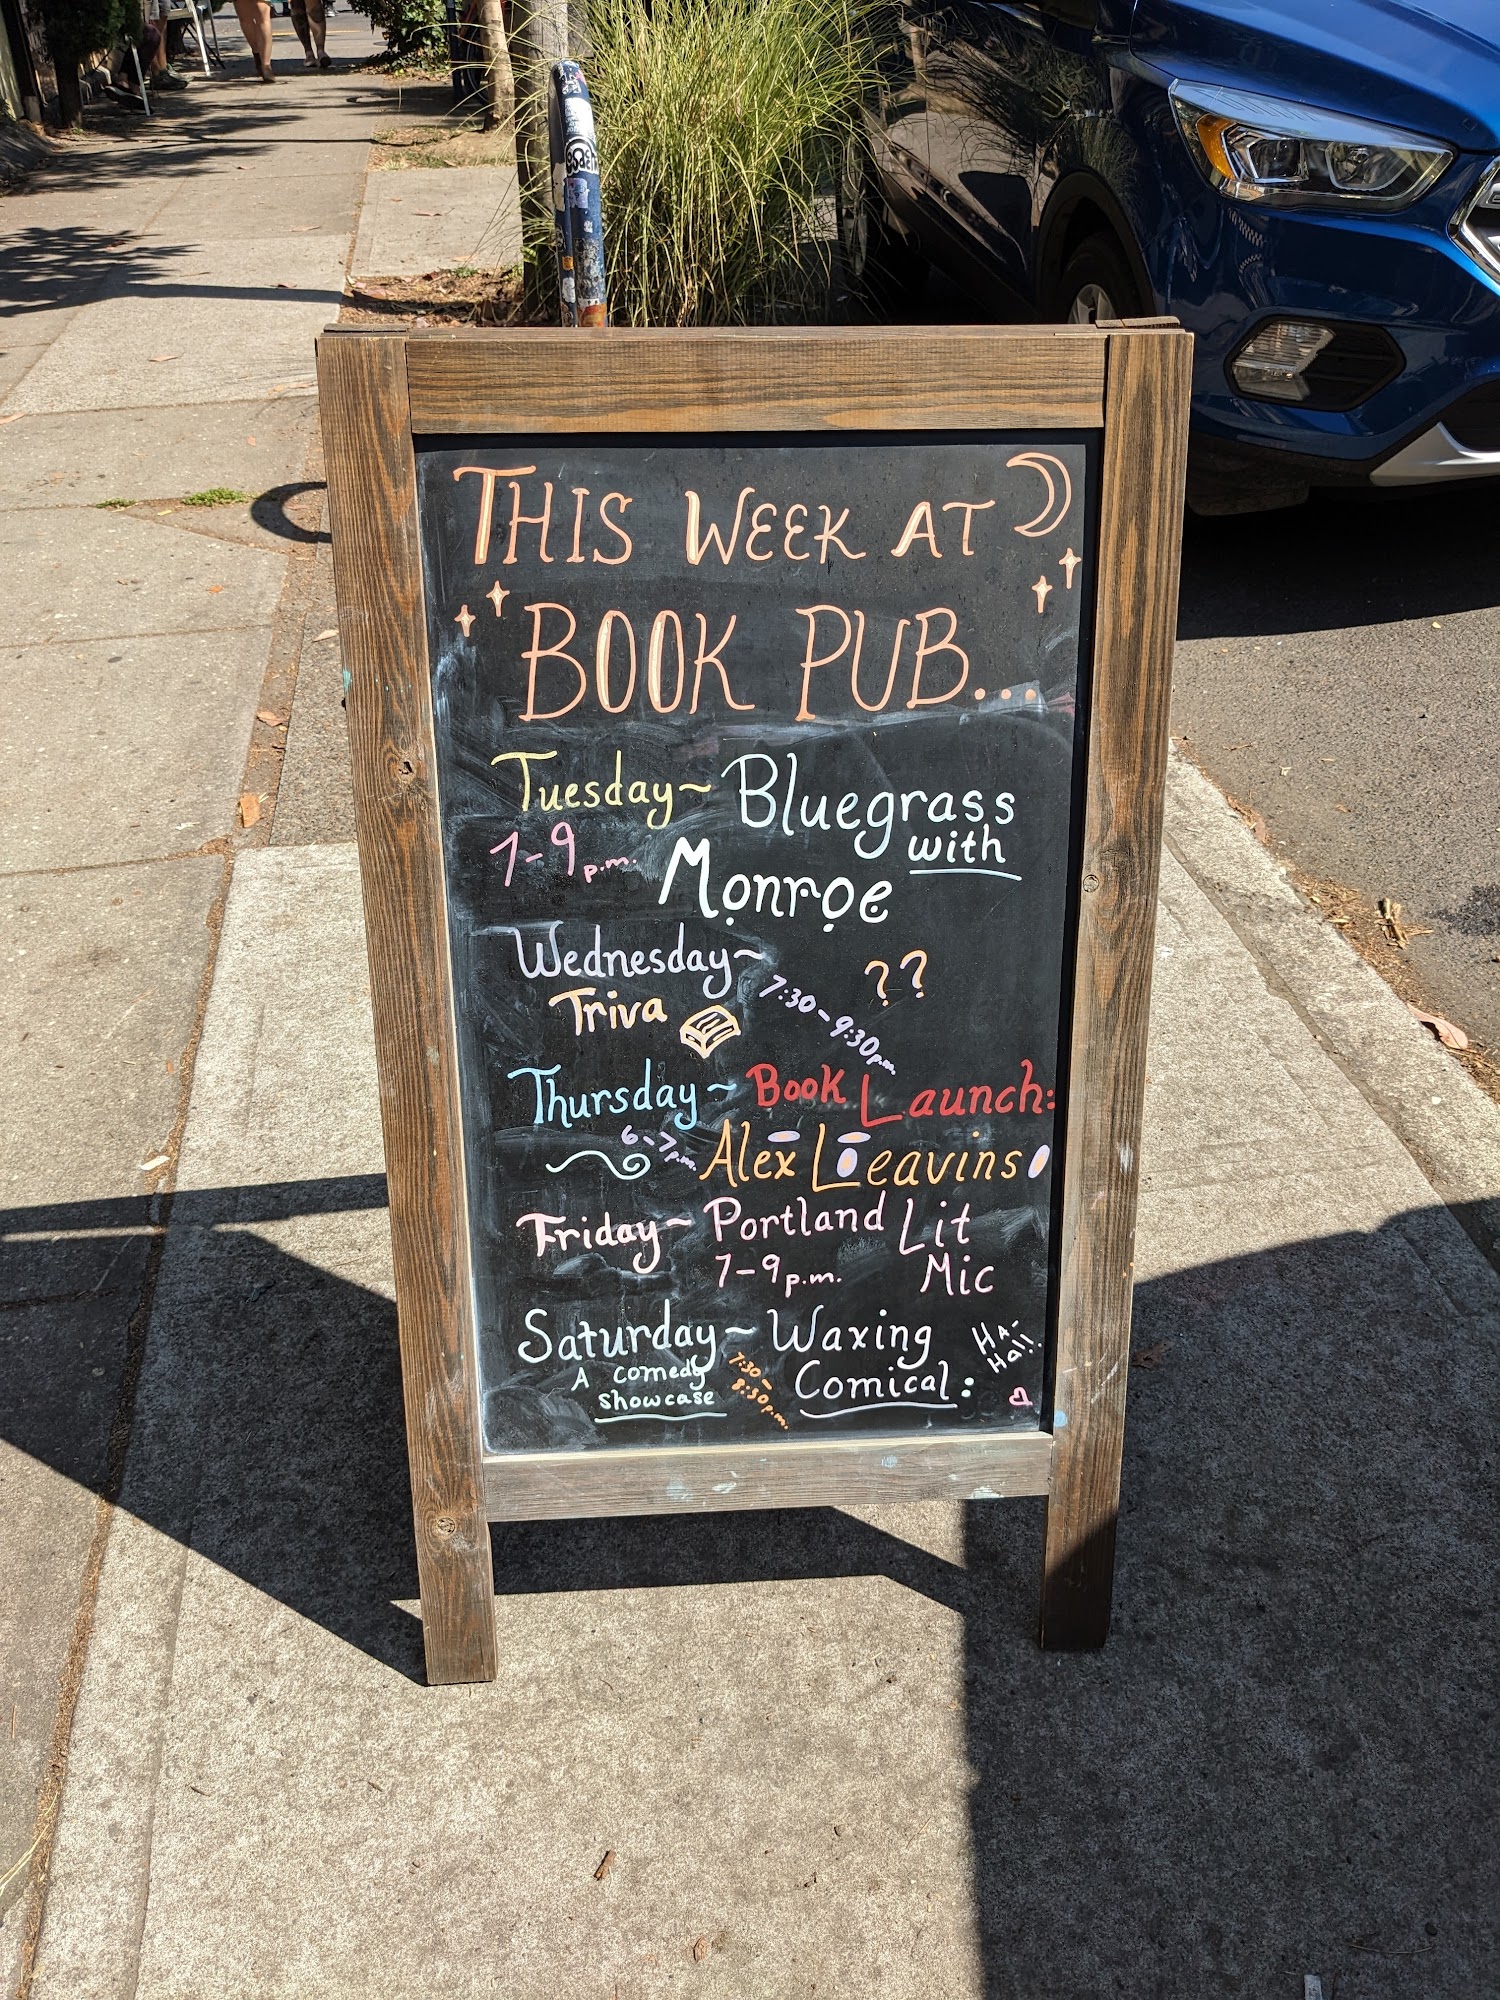 THIS WEEK AT
BOOK PUB...
Tuesday~ Bluegrass
with
7-9 p.m. Monroe
Wednesday~ ??
Triva 7:30-9:30p.m.
Thursday~ Book Launch:
6-7p.m. Alex Leavins
Friday~ Portland Lit
7-9 p.m. Mic
Saturday~ Waxing
A comedy showcase 7:30-8:30p.m. Comical:
HA-
Ha!!